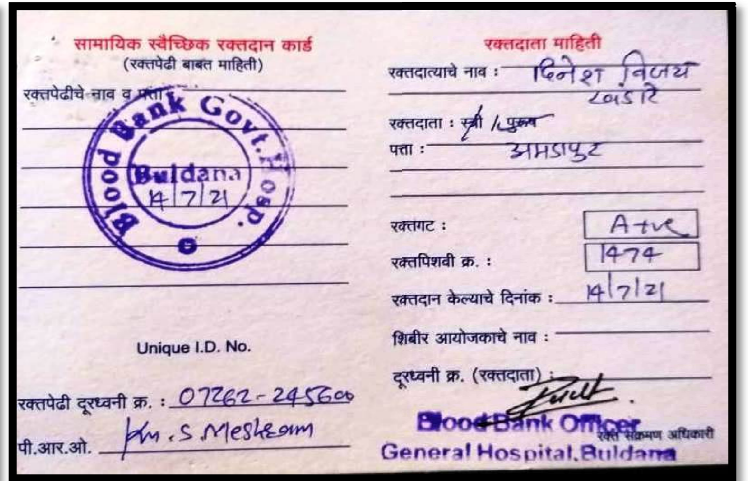 सामायिक स्वैच्छिक रक्तदान कार्ड
(रक्तपेढी बाबत माहिती)
रक्तपेढीचे नाव व पत्ता
Blood Bank Govt. Hosp.
Buldana
14/7/21
Unique I.D. No.
रक्तपेढी दूरध्वनी क्र. : 07262-245600
पी.आर.ओ. Km. S. Meshram
रक्तदाता माहिती
रक्तदात्याचे नाव : दिनेश विजय
खंडारे
रक्तदाता : स्त्री / पुरूष
पत्ता : अमडापुर
रक्तगट : A+ve
रक्तपिशवी क्र. : 1474
रक्तदान केल्याचे दिनांक : 14/7/21
शिबीर आयोजकाचे नाव :
दूरध्वनी क्र. (रक्तदाता) :
Blood Bank Officer
रक्त संक्रमण अधिकारी
General Hospital, Buldana